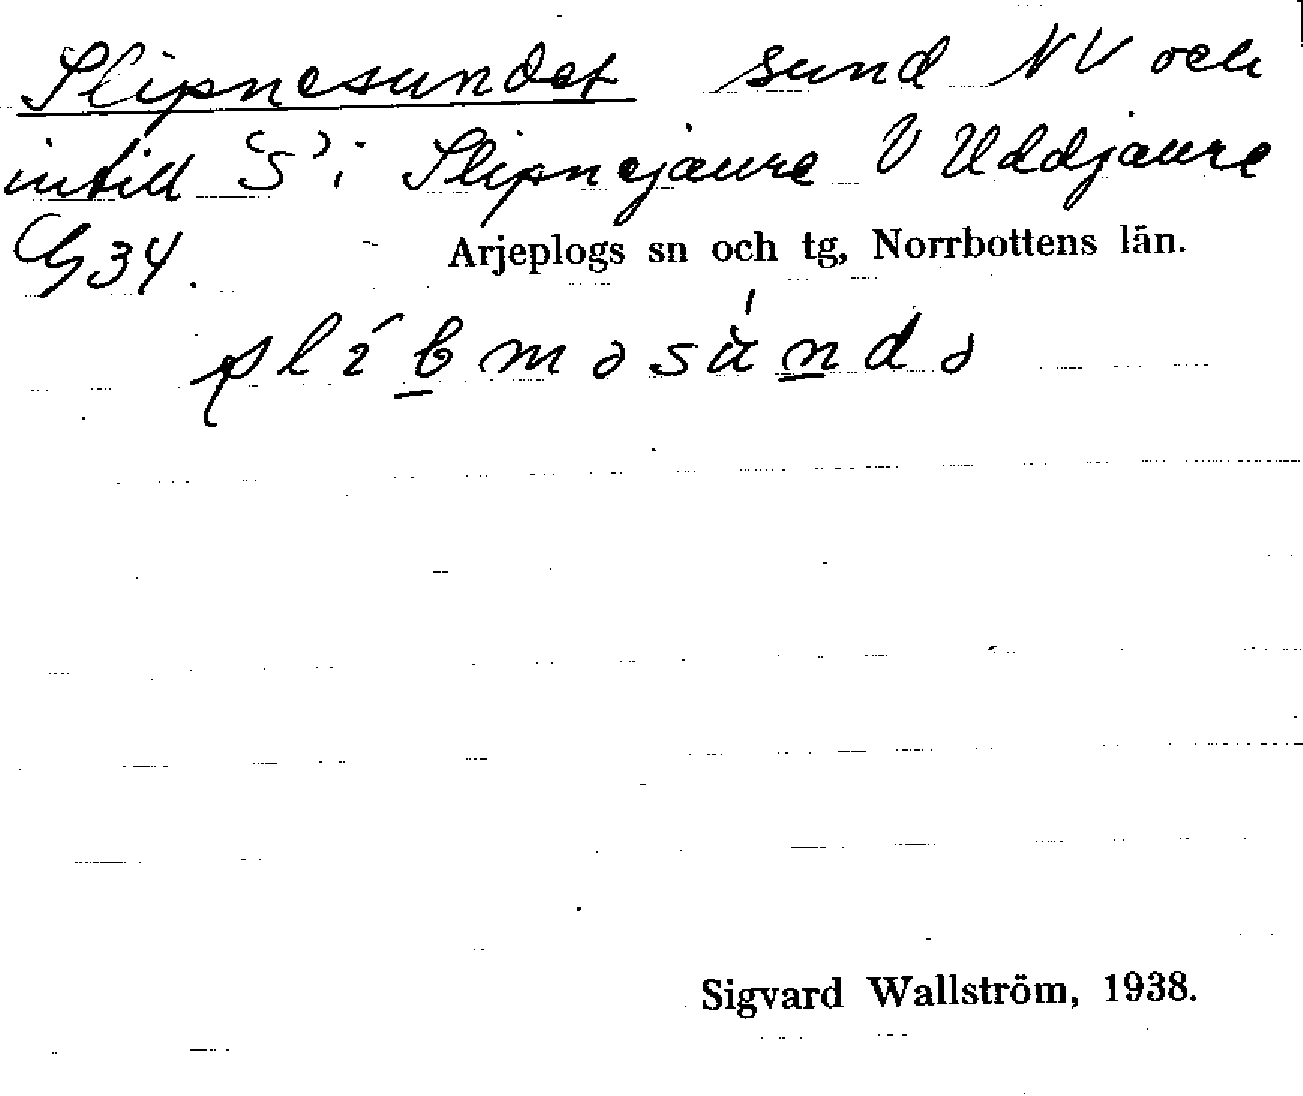 Slipnesundet sund NV och
intill 'S' i Slipnejaure V Uddjaure
G34. Arjeplogs sn och tg, Norrbottens län.
Sigvard Wallström, 1938.